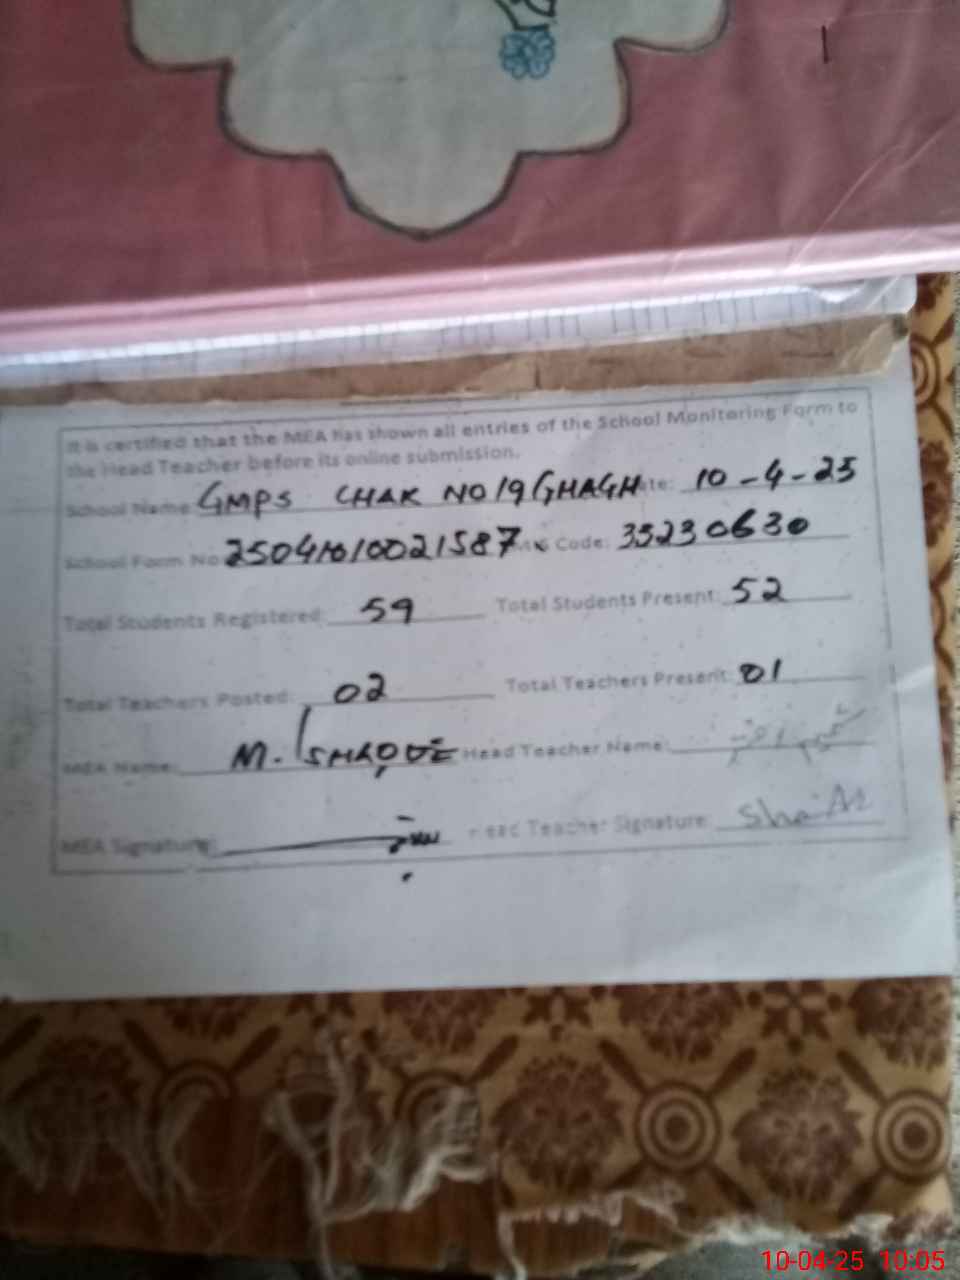 It is certified that the MEA has shown all entries of the School Monitoring Form to
the Head Teacher before its online submission.
School Name: GMPS CHAK NO 19 GHAGH Date: 10-4-25
School Form No 25041010021587 Code: 35230630
Total Students Registered: 59 Total Students Present: 52
Total Teachers Posted: 02 Total Teachers Present: 01
MEA Name: M. Head Teacher Name:
MEA Signature: Head Teacher Signature:
10-04-25 10:05